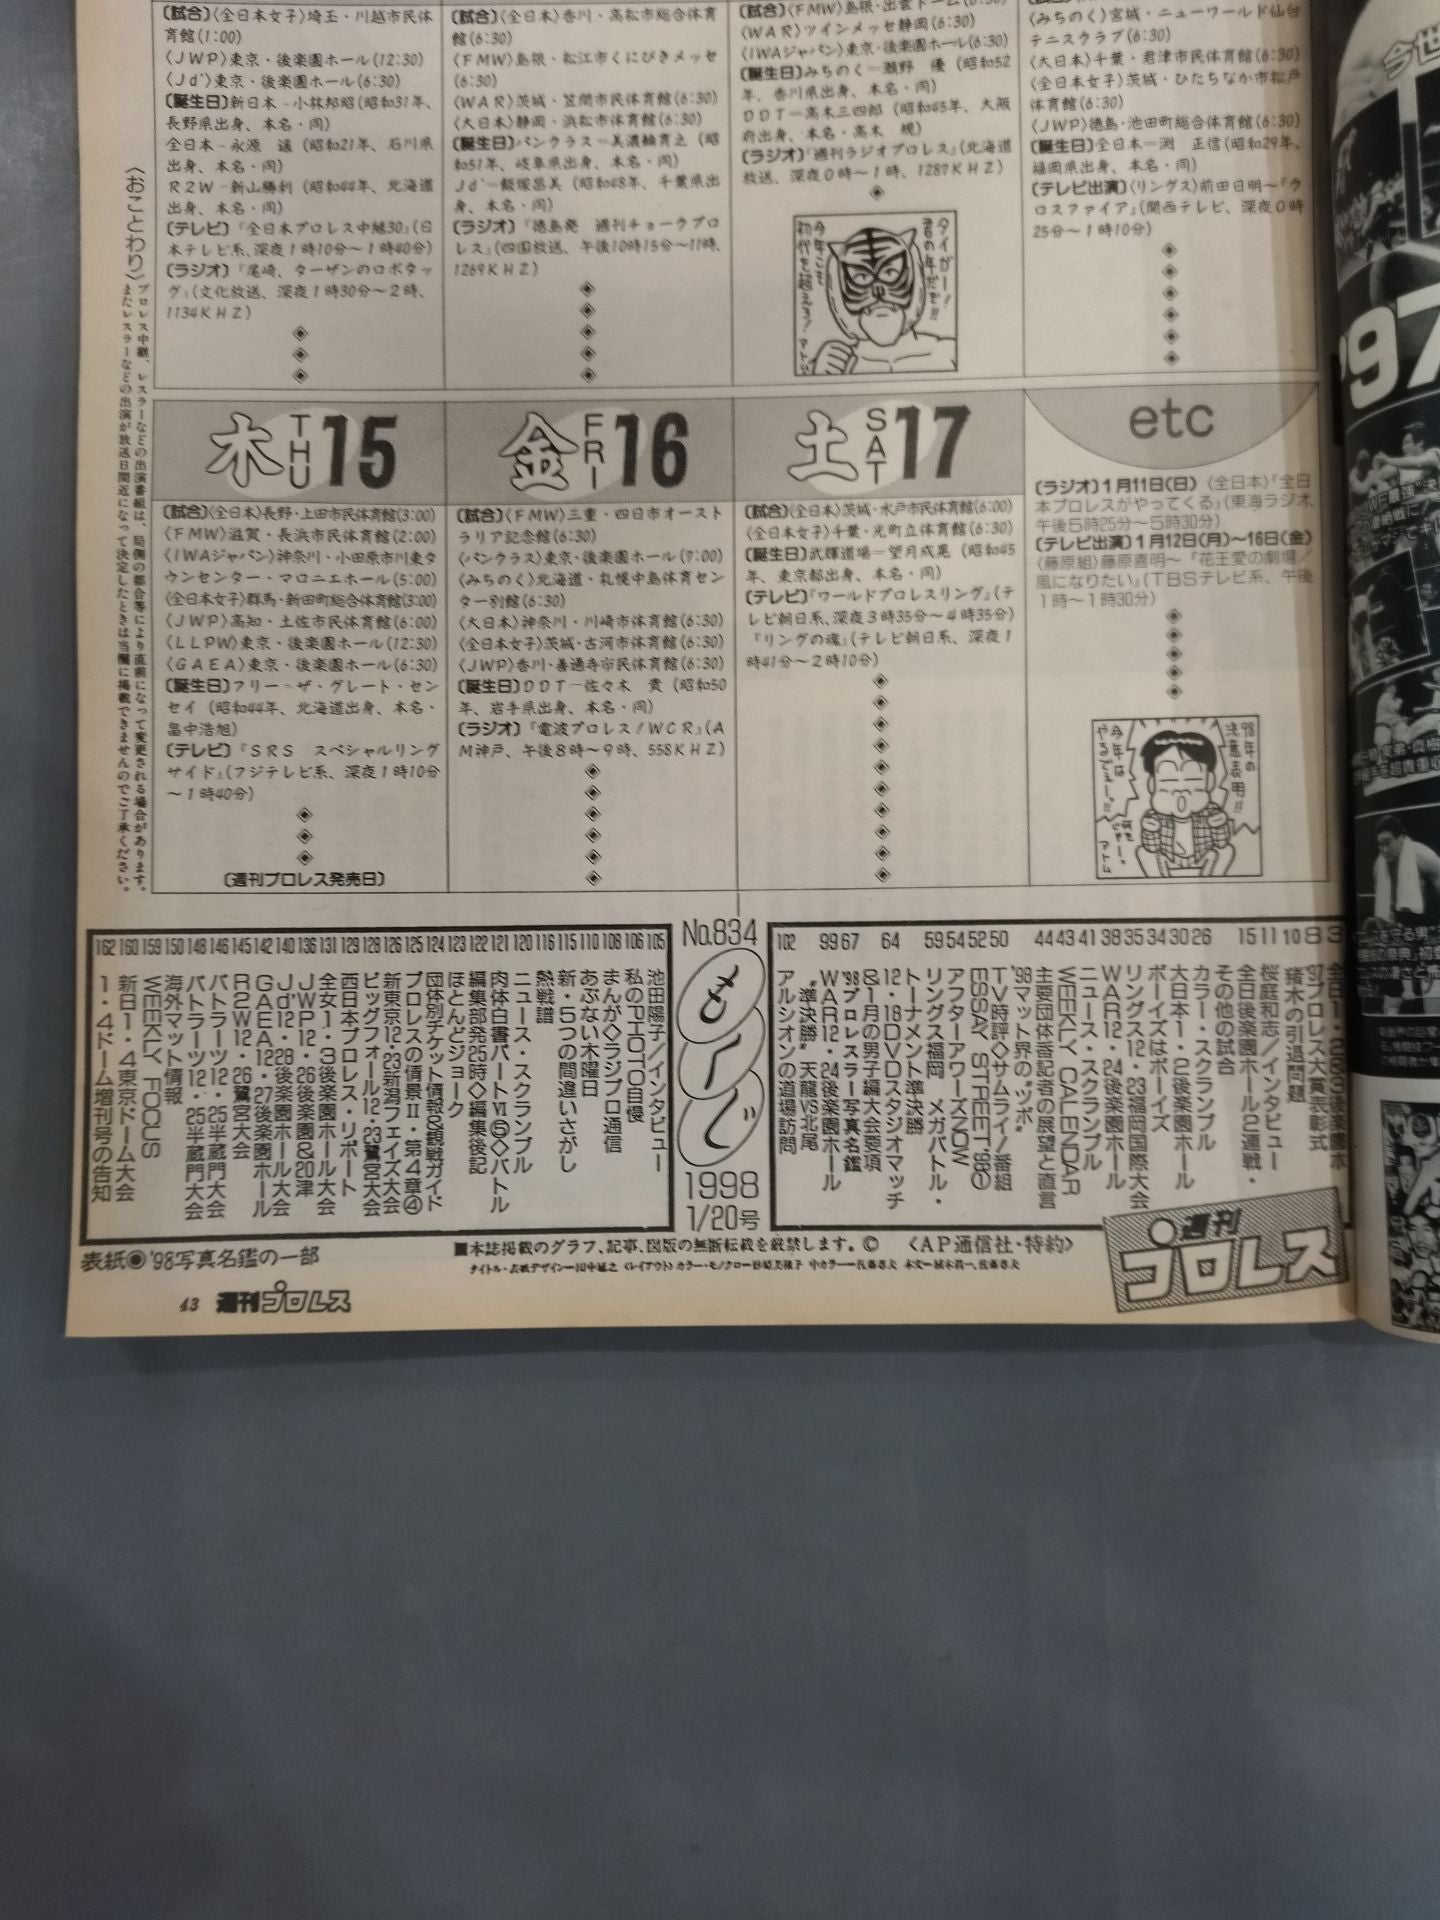 〔試合〕〈全日本女子〉埼玉・川越市民体
育館(1:00)
〈JWP〉東京・後楽園ホール(12:30)
〈Jd'〉東京・後楽園ホール(6:30)
〔誕生日〕新日本-小林邦昭(昭和31年、
長野県出身、本名・同)
全日本-永源 遙(昭和21年、石川県
出身、本名・同)
R2W-新山勝利(昭和44年、北海道
出身、本名・同)
〔テレビ〕『全日本プロレス中継30』(日
本テレビ系、深夜1時10分〜1時40分)
〔ラジオ〕『尾崎、ターザンのロボタッ
グ』(文化放送、深夜1時30分〜2時、
1134KHZ)
〔試合〕〈全日本〉香川・高松市総合体育
館(6:30)
〈FMW〉島根・松江市くにびきメッセ
(6:30)
〈WAR〉茨城・笠間市民体育館(6:30)
〈大日本〉静岡・浜松市体育館(6:30)
〔誕生日〕パンクラス-美濃輪育之(昭
和51年、岐阜県出身、本名・同)
Jd'=飯塚昌美(昭和48年、千葉県出
身、本名・同)
〔ラジオ〕『徳島発 週刊チョークプロ
レス』(四国放送、午後10時15分〜11時、
1269KHZ)
〔試合〕〈FMW〉島根・出雲ドーム(6:30)
〈WAR〉ツインメッセ静岡(6:30)
〈IWAジャパン〉東京・後楽園ホール(6:30)
〔誕生日〕みちのく=瀬野 優(昭和52
年、香川県出身、本名・同)
DDT=高木三四郎(昭和45年、大阪
府出身、本名・高木 規)
〔ラジオ〕『週刊ラジオプロレス』(北海道
放送、深夜0時〜1時、1287KHZ)
タイガー!
君の年だぞ!!
今年こそ
初代を超えろ!
アトム
〈みちのく〉宮城・ニューワールド仙台
テニスクラブ(6:30)
〈大日本〉千葉・君津市民体育館(6:30)
〈全日本女子〉茨城・ひたちなか市松戸
体育館(6:30)
〈JWP〉徳島・池田町総合体育館(6:30)
〔誕生日〕全日本=渕 正信(昭和29年、
福岡県出身、本名・同)
〔テレビ出演〕〈リングス〉前田日明〜『ク
ロスファイア』(関西テレビ、深夜0時
25分〜1時10分)
〈おことわり〉プロレス中継、レスラーなどの出演番組は、局側の都合等により直前になって変更される場合があります。
またレスラーなどの出演が放送日間近になって決定したときは当欄に掲載できませんのでご了承ください。
木 THU 15
〔試合〕〈全日本〉長野・上田市民体育館(3:00)
〈FMW〉滋賀・長浜市民体育館(2:00)
〈IWAジャパン〉神奈川・小田原市川東タ
ウンセンター・マロニエホール(5:00)
〈全日本女子〉群馬・新田町総合体育館(3:00)
〈JWP〉高知・土佐市民体育館(6:00)
〈LLPW〉東京・後楽園ホール(12:30)
〈GAEA〉東京・後楽園ホール(6:30)
〔誕生日〕フリー=ザ・グレート・セン
セイ(昭和44年、北海道出身、本名・
畠中浩旭)
〔テレビ〕『SRS スペシャルリング
サイド』(フジテレビ系、深夜1時10分
〜1時40分)
〔週刊プロレス発売日〕
金 FRI 16
〔試合〕〈FMW〉三重・四日市オースト
ラリア記念館(6:30)
〈パンクラス〉東京・後楽園ホール(7:00)
〈みちのく〉北海道・札幌中島体育セン
ター別館(6:30)
〈大日本〉神奈川・川崎市体育館(6:30)
〈全日本女子〉茨城・古河市体育館(6:30)
〈JWP〉香川・善通寺市民体育館(6:30)
〔誕生日〕DDT-佐々木 貴(昭和50
年、岩手県出身、本名・同)
〔ラジオ〕『電波プロレス!WCR』(A
M神戸、午後8時〜9時、558KHZ)
土 SAT 17
〔試合〕〈全日本〉茨城・水戸市民体育館(6:00)
〈全日本女子〉千葉・光町立体育館(6:30)
〔誕生日〕武輝道場=望月成晃(昭和45
年、東京都出身、本名・同)
〔テレビ〕『ワールドプロレスリング』(テ
レビ朝日系、深夜3時35分〜4時35分)
『リングの魂』(テレビ朝日系、深夜1
時41分〜2時10分)
etc
〔ラジオ〕1月11日(日)〈全日本〉『全日
本プロレスがやってくる』(東海ラジオ、
午後5時25分〜5時30分)
〔テレビ出演〕1月12日(月)〜16日(金)
〈藤原組〉藤原喜明〜『花王愛の劇場/
風になりたい』(TBSテレビ系、午後
1時〜1時30分)
98年の
決意表明!!
今年は
アトム
3
8 '97プロレス大賞表彰式
10 猪木の引退問題
11 桜庭和志/インタビュー
15 全日後楽園ホール2連戦・
その他の試合
26 カラー・スクランブル
30 大日本1・2後楽園ホール
34 ボーイズはボーイズ
35 リングス12・23福岡国際大会
38 WAR12・24後楽園ホール
41 ニュース・スクランブル
43 WEEKLY CALENDAR
44 主要団体番記者の展望と直言
'98マット界の“ツボ”
50 TV時評◇サムライ!番組
52 ESSAY STREET'98①
54 アフターアワーズNOW
59 リングス福岡 メガバトル・
トーナメント準決勝
64 12・18DVDスタジオマッチ
&1月の男子編大会要項
67 '98プロレスラー写真名鑑
99 WAR12・24後楽園ホール
“準決勝”天龍VS北尾
102 アルシオンの道場訪問
No.834
もくじ
1998
1/20号
105 池田陽子/インタビュー
106 私のPHOTO自慢
108 まんが◇ラジプロ通信
110 あぶない木曜日
115 新・5つの間違いさがし
116 熱戦譜
120 ニュース・スクランブル
121 肉体白書パートⅥ⑤◇バトル
122 編集部発25時◇編集後記
123 ほとんどジョーク
124 団体別チケット情報&観戦ガイド
125 プロレスの情景Ⅱ・第4章④
126 新東京12・23新潟フェイズ大会
128 ビッグフォール12・23鷺宮大会
129 西日本プロレス・リポート
131 全女1・3後楽園ホール大会
136 JWP12・26後楽園&20津
140 Jd'12・28後楽園ホール大会
142 GAEA12・27後楽園ホール
145 R2W12・26鷺宮大会
146 バトラーツ12・25半蔵門大会
148 バトラーツ12・25半蔵門大会
150 海外マット情報
159 WEEKLY FOCUS
160 新日1・4東京ドーム大会
162 1・4ドーム増刊号の告知
表紙◉'98写真名鑑の一部
■本誌掲載のグラフ、記事、図版の無断転載を厳禁します。© 〈AP通信社・特約〉
週刊プロレス
43 週刊プロレス
'97